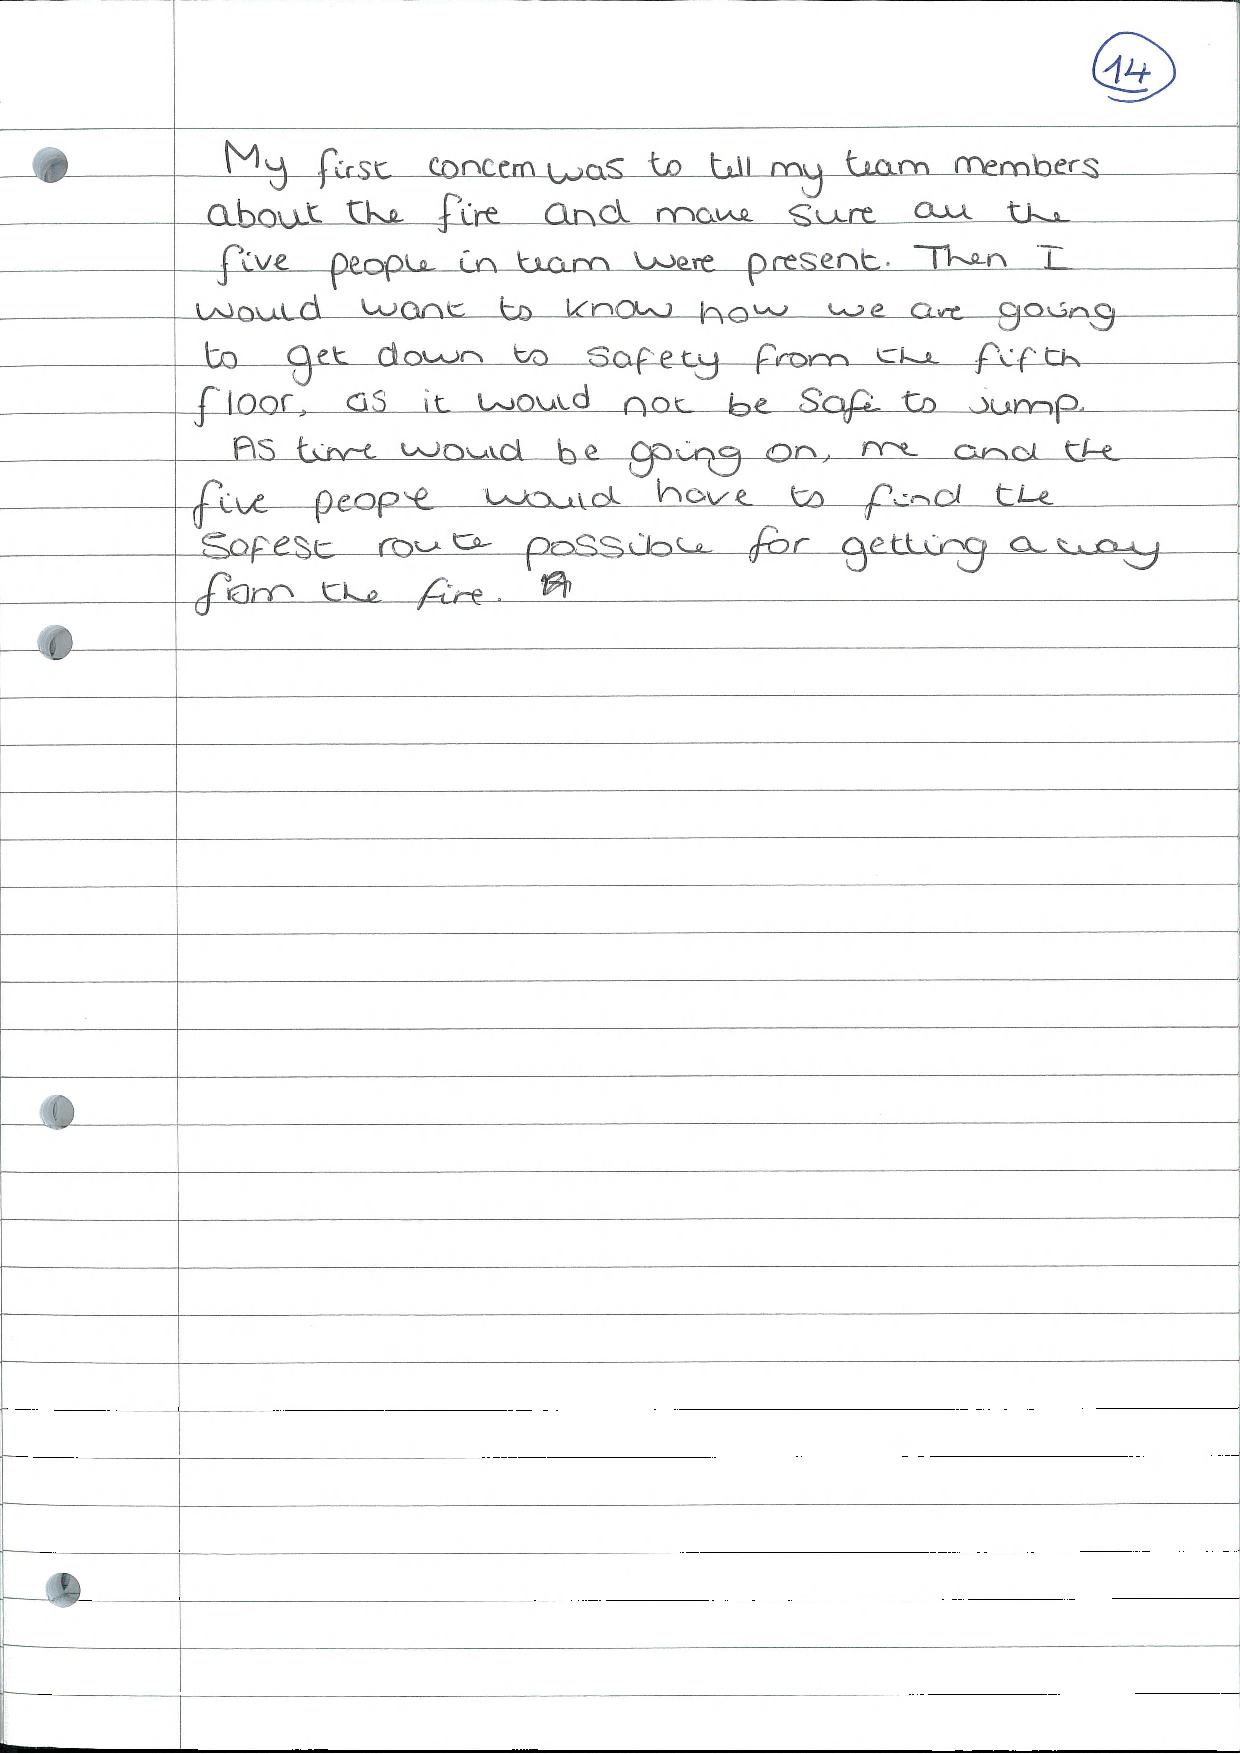 14
My first concern was to tell my team members
about the fire and make sure all the
five people in team were present. Then I
would want to know how we are going
to get down to safety from the fifth
floor, as it would not be safe to jump.
As time would be going on, me and the
five people would have to find the
safest route possible for getting away
from the fire.